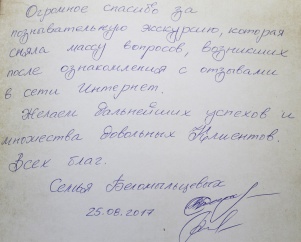 Огромное спасибо за
познавательную экскурсию, которая
сняла массу вопросов, возникших
после ознакомления с отзывами
в сети Интернет.
Желаем дальнейших успехов и
множества довольных Клиентов.
Всех благ.
Семья Беломальцевых
25.08.2017